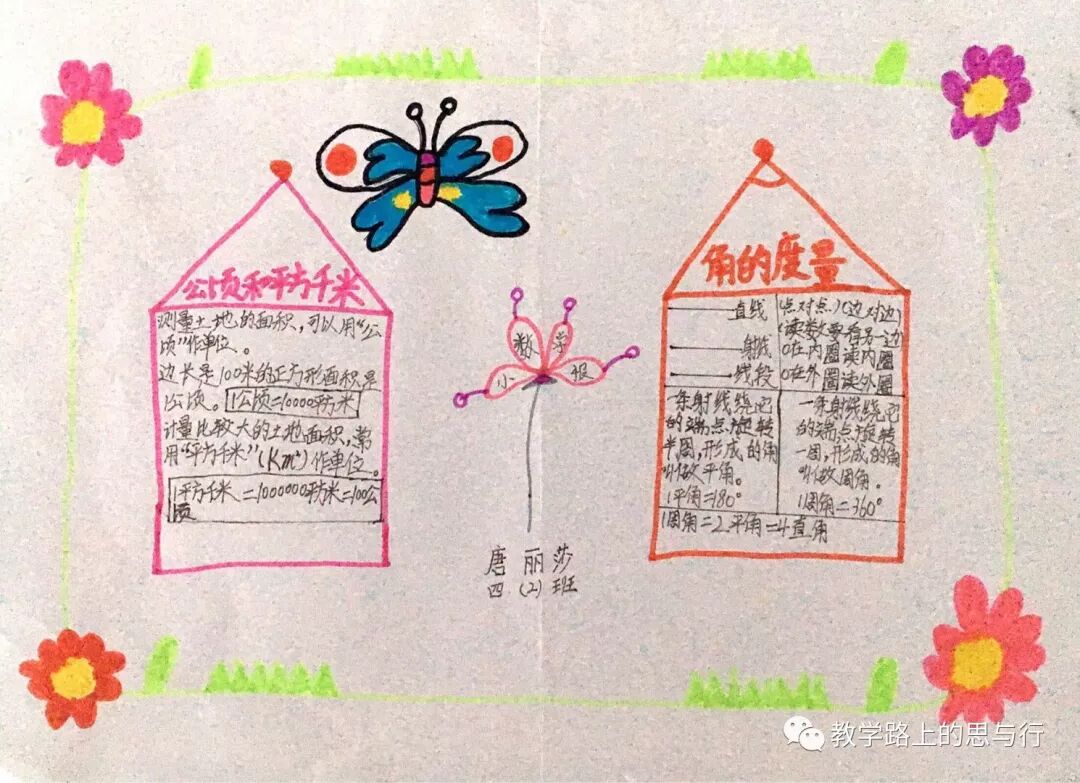 公顷和平方千米
测量土地的面积，可以用“公
顷”作单位。
边长是100米的正方形面积是
1公顷。1公顷=10000平方米
计量比较大的土地面积，常
用“平方千米”(Km²)作单位。
1平方千米=1000000平方米=100公
顷
小数学报
唐丽莎
四(2)班
角的度量
直线
射线
线段
点对点)(边对边)
(读数要看另一边)
0在内圈读内圈
0在外圈读外圈
一条射线绕它
的端点旋转
半圈,形成的角
叫做平角。
1平角=180°
一条射线绕它
的端点旋转
一圈,形成的角
叫做周角。
1周角=360°
1周角=2平角=4直角
教学路上的思与行